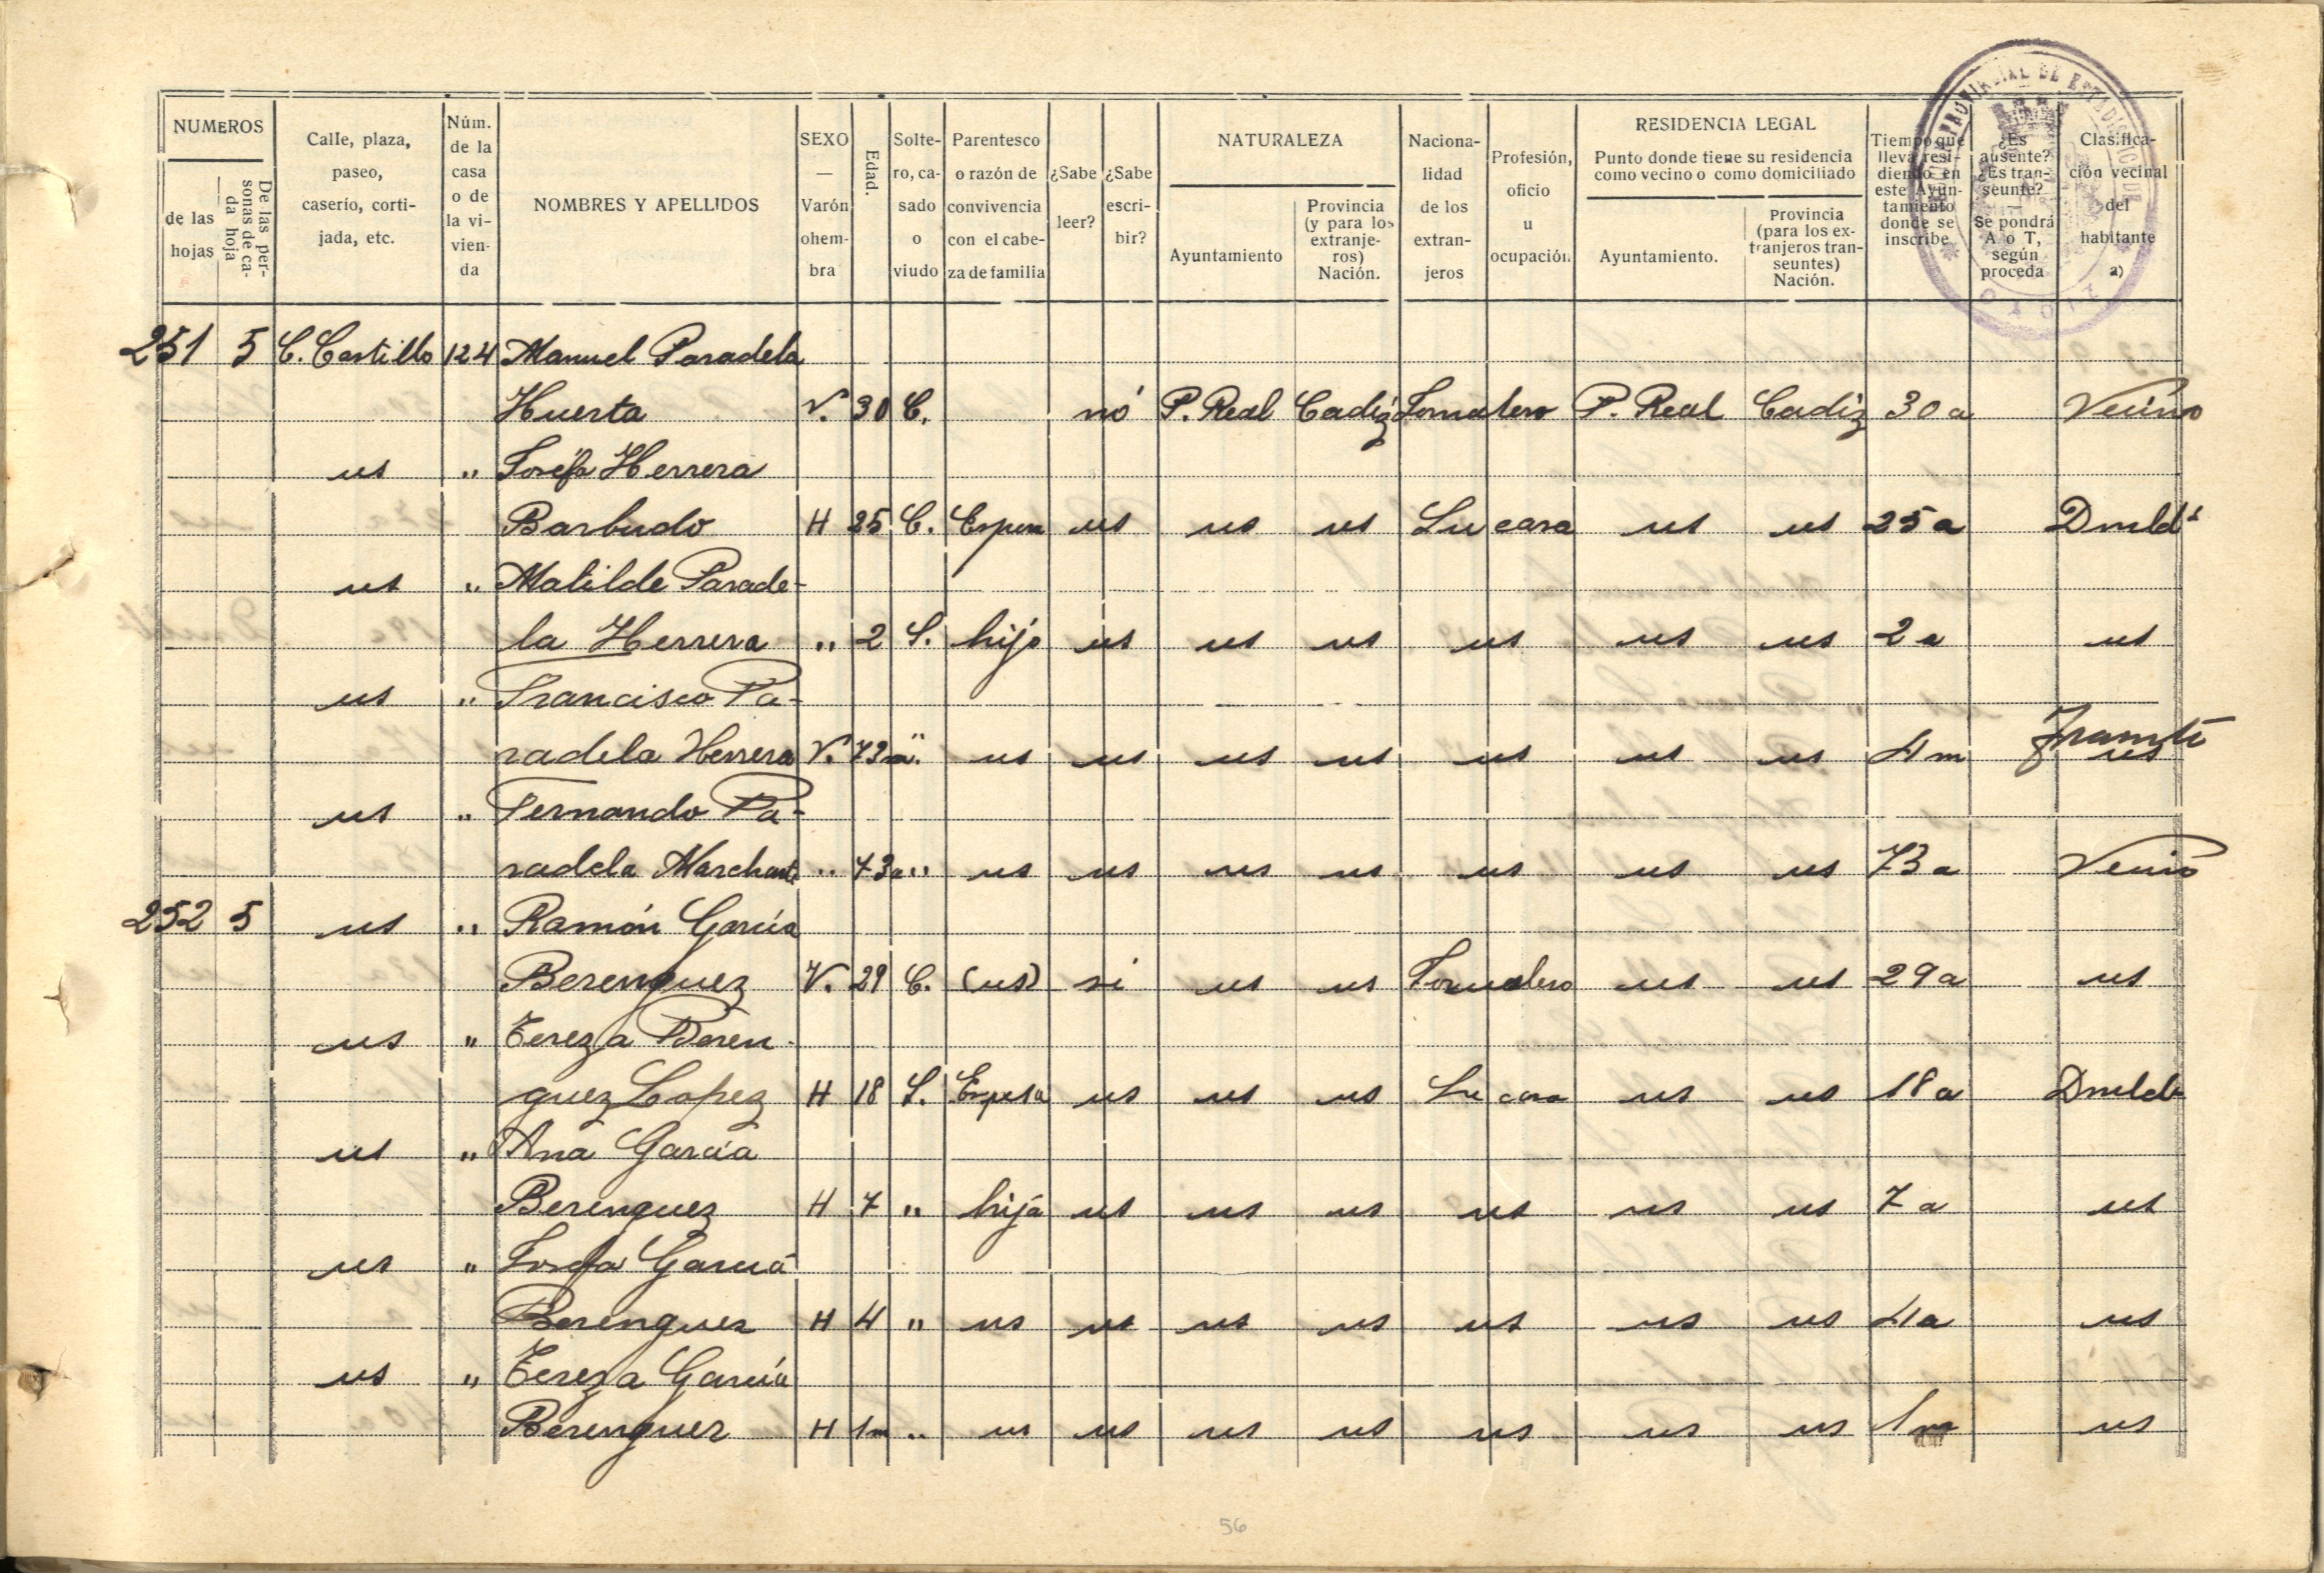 NUMEROS
de las hojas
De las personas de cada hoja
Calle, plaza, paseo, caserío, cortijada, etc.
Núm. de la casa o de la vivienda
NOMBRES Y APELLIDOS
SEXO — Varón o hembra
Edad.
Soltero, casado o viudo
Parentesco o razón de convivencia con el cabeza de familia
¿Sabe leer?
¿Sabe escribir?
NATURALEZA
Ayuntamiento
Provincia (y para los extranjeros) Nación.
Nacionalidad de los extranjeros
Profesión, oficio u ocupación.
RESIDENCIA LEGAL
Punto donde tiene su residencia como vecino o como domiciliado
Ayuntamiento.
Provincia (para los extranjeros transeuntes) Nación.
Tiempo que lleva residiendo en este Ayuntamiento donde se inscribe
¿Es ausente? ¿Es transeunte? — Se pondrá A o T, según proceda
Clasificación vecinal del habitante a)
251 5 C. Castillo 124 Manuel Paradela
Huerta V. 30 C. nó P. Real Cadiz Jornalero P. Real Cadiz 30 a Vecino
us " Josefa Herrera
Barbudo H 25 C. Esposa us us us Su casa us us 25 a Dmldª
us " Matilde Parade-
la Herrera " 2 S. hija us us us us us us 2 a us
us " Francisco Pa-
radela Herrera V. us us us us us us us 4 m us
us " Fernando Pa-
radela Marchante " 73a " us us us us us us us 73 a Vecino
252 5 us " Ramón García
Berenguez V. 29 C. (us) si us us Jornalero us us 29 a us
us " Tereza Beren-
guez Lopez H 18 S. Esposa us us us Su casa us us 18 a Dmldª
us " Ana García
Berenguez H 7 " hija us us us us us us 7 a us
us " Josefa García
Berenguez H 4 " us us us us us us us 4 a us
us " Tereza García
Berenguez H 1m " us us us us us us us 1 m us
56